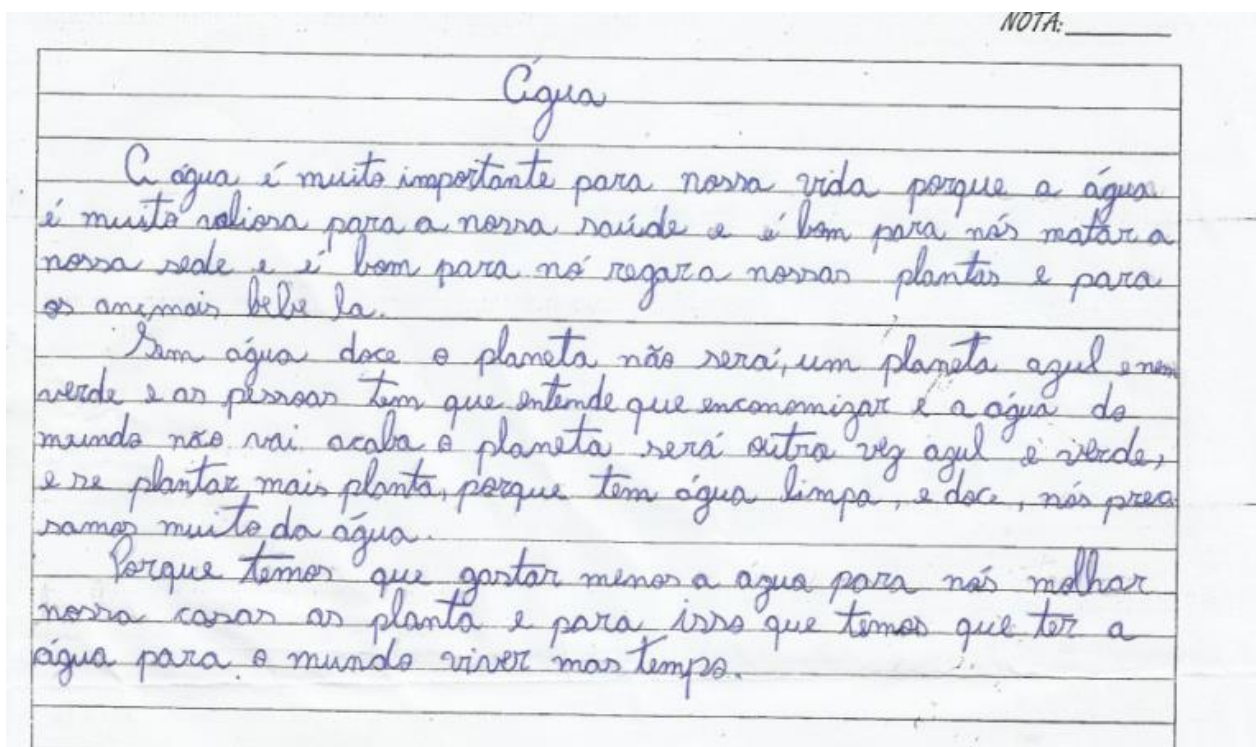 NOTA:
Água
A água é muito importante para nossa vida porque a água
é muito valiosa para a nossa saúde e é bom para nós matar a
nossa sede e é bom para nó regar a nossas plantas e para
os animais bebe la.
Sem água doce o planeta não será, um planeta azul e nem
verde e as pessoas tem que entende que enconomizar é a água do
mundo não vai acaba o planeta será outra vez azul é verde,
e se plantar mais planta, porque tem água limpa, e doce, nós preci
samos muito da água.
Porque temos que gastar menos a água para nós molhar
nossa casas as planta e para isso que temos que ter a
água para o mundo viver mas tempo.